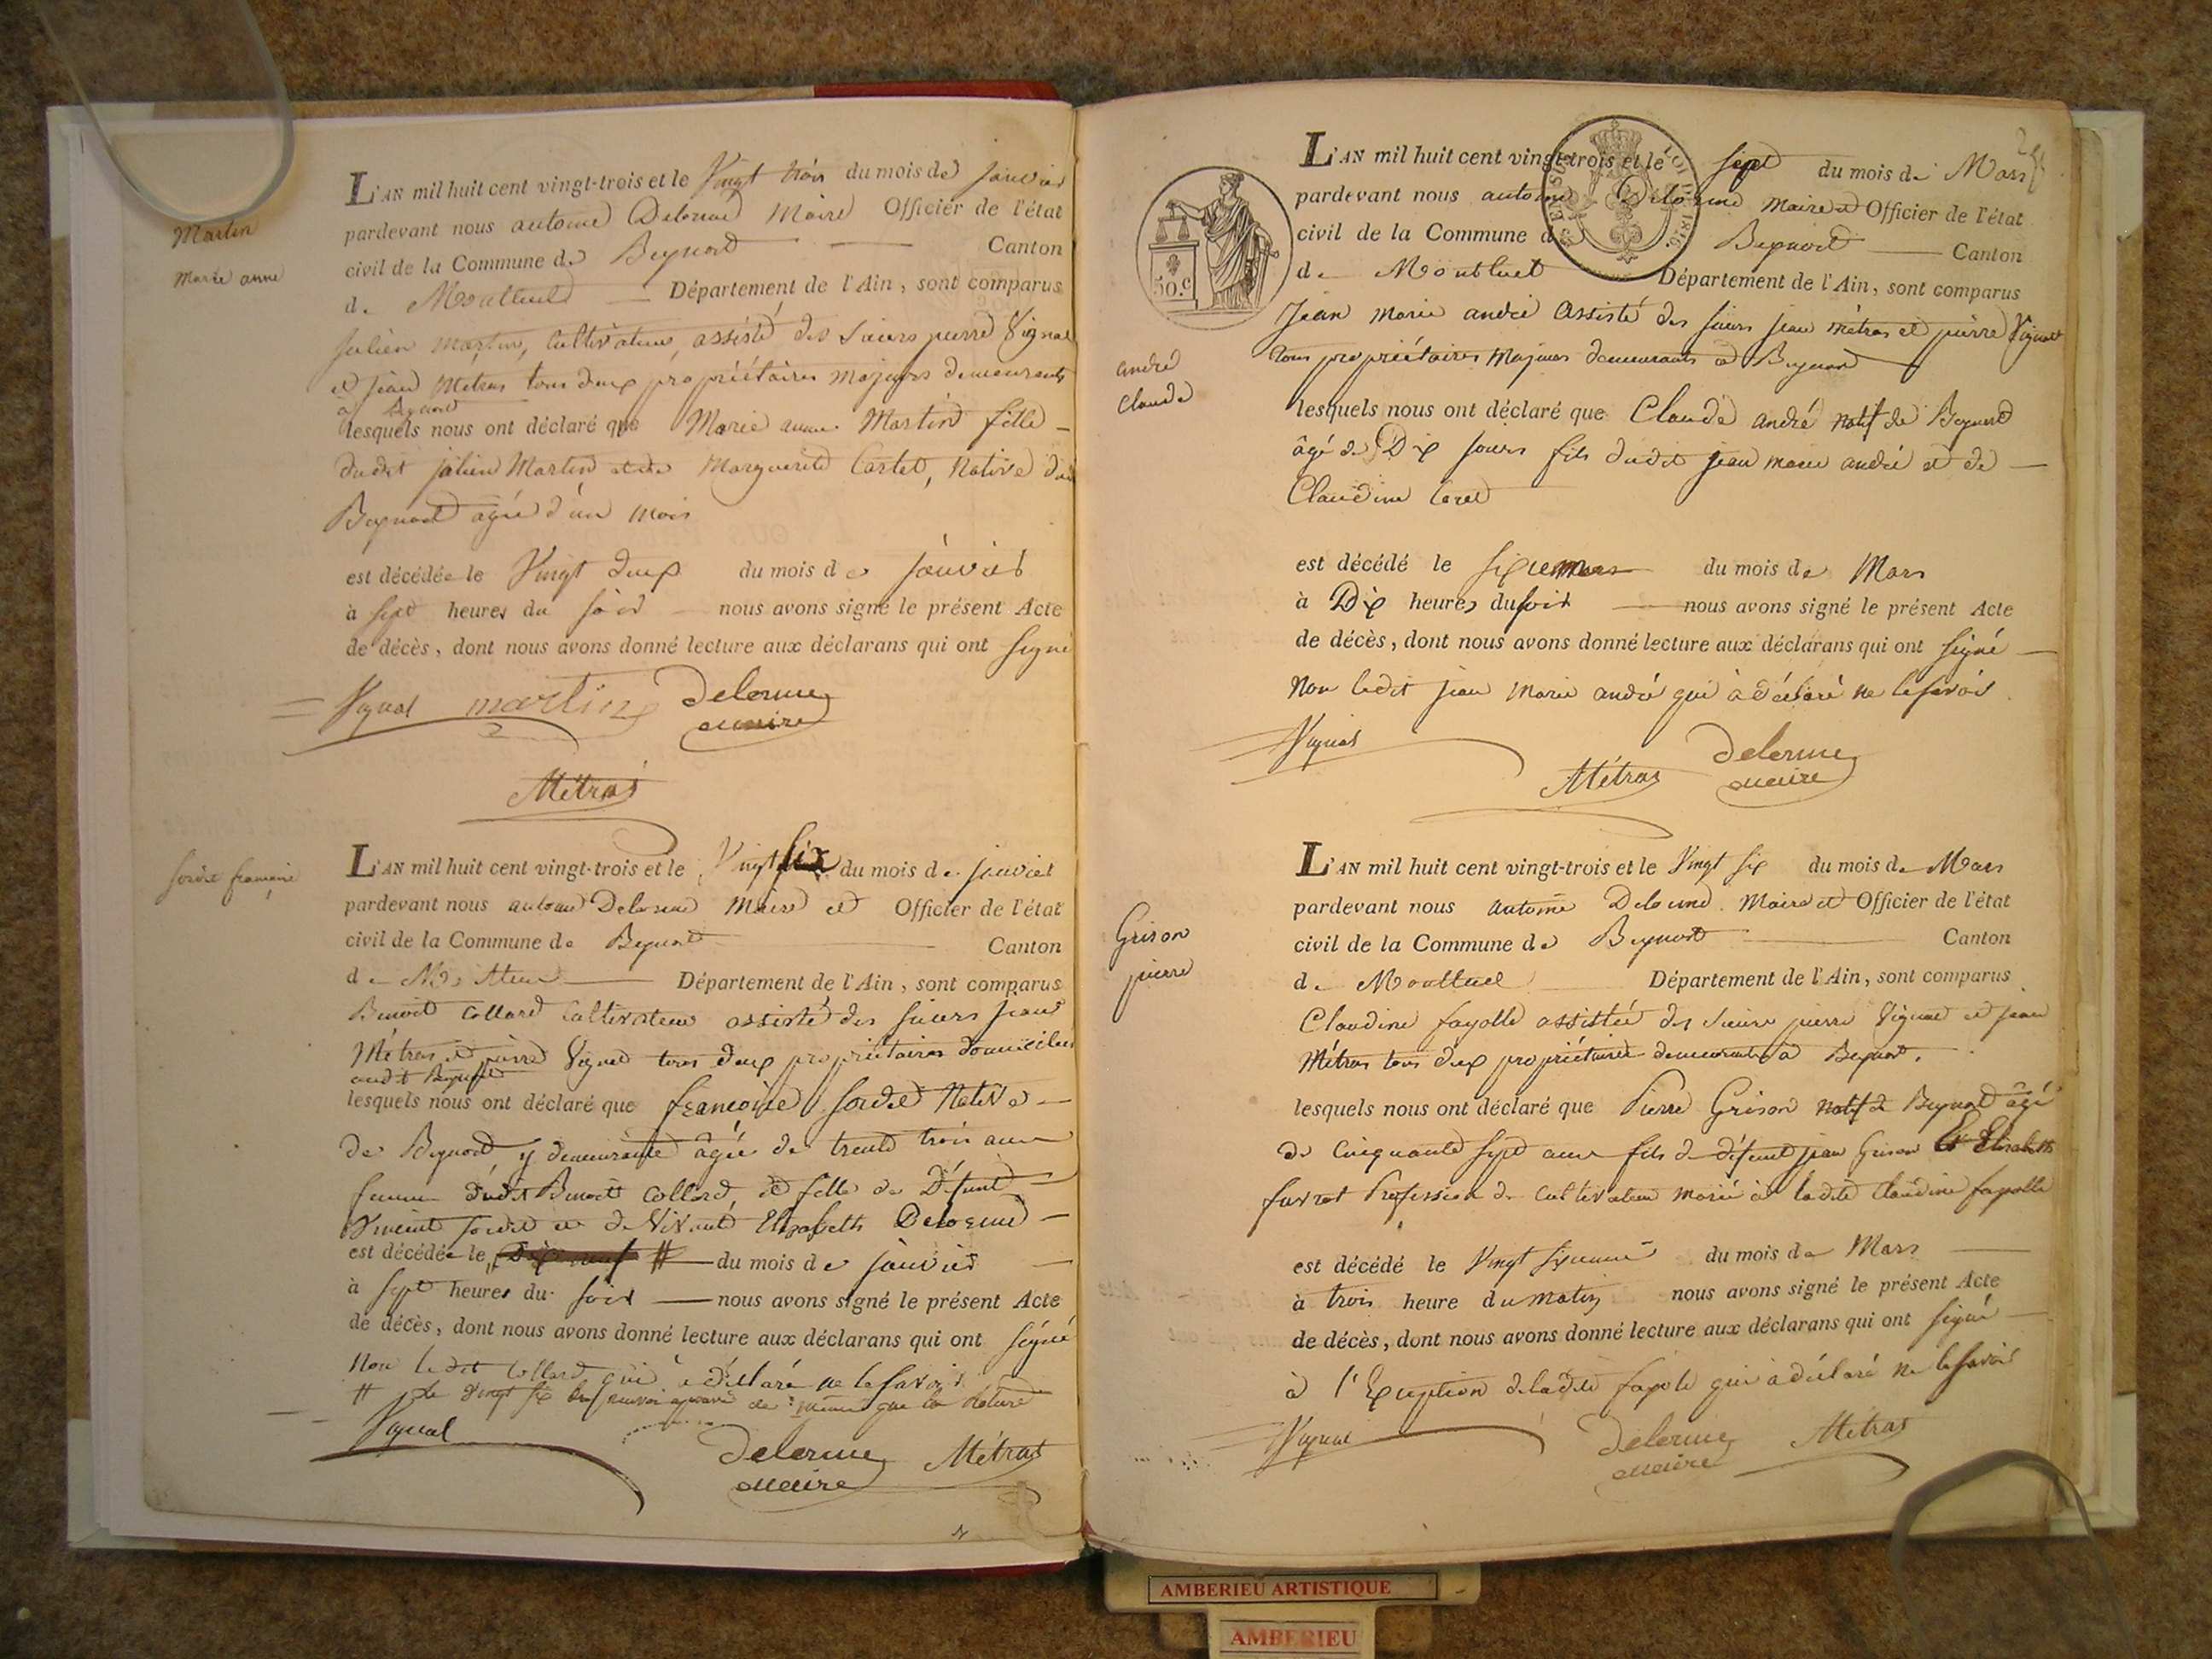 Martin
Marie anne
L'AN mil huit cent vingt-trois et le Vingt trois du mois de janvier
pardevant nous antoine Delorme Maire Officier de l'état
civil de la Commune de Beynost Canton
de Montluel Département de l'Ain, sont comparus
julien martin, Cultivateur, assisté des sieurs pierre Vignat
et jean Métras tous deux propriétaires majeurs demeurants
a Beynost
lesquels nous ont déclaré que Marie anne Martin fille
dudit julien Martin et de Marguerite Cartet, Native de
Beynost agée d'un mois
est décédée le Vingt deux du mois de janvier
à sept heures du soir nous avons signé le présent Acte
de décès, dont nous avons donné lecture aux déclarans qui ont signé
Vignat martin Delorme
maire
Métras
sordet françoise
L'AN mil huit cent vingt-trois et le Vingt six du mois de janvier
pardevant nous antoine Delorme Maire et Officier de l'état
civil de la Commune de Beynost Canton
de Département de l'Ain, sont comparus
Benoit Collard Cultivateur assisté des sieurs jean
Métras et pierre Vignat tous deux propriétaires domiciliés
audit Beynost
lesquels nous ont déclaré que françoise sordet Native
de Beynost y demeurante âgée de trente trois ans
femme dudit Benoit Collard, et fille de Défunt
Vincent sordet et de Vivante Elisabeth Delorme
est décédée le Dix neuf # du mois de janvier
à sept heures du soir nous avons signé le présent Acte
de décès, dont nous avons donné lecture aux déclarans qui ont signé
Non ledit Collard qui a déclaré ne le savoir
# Le vingt six de que la
Vignat
Delorme Métras
maire
L'AN mil huit cent vingt-trois et le sept du mois de Mars
pardevant nous antoine Delorme maire et Officier de l'état
civil de la Commune de Beynost Canton
de Montluel Département de l'Ain, sont comparus
50.c
LOI DE 1816.
Jean Marie andré Assisté des sieurs jean métras et pierre Vignat
tous propriétaires Majeurs demeurants à Beynost
andré
Claude
lesquels nous ont déclaré que Claude andré natif de Beynost
âgé de Dix jours fils dudit jean marie andré et de
Claudine
est décédé le du mois de Mars
à Dix heures du soir nous avons signé le présent Acte
de décès, dont nous avons donné lecture aux déclarans qui ont signé
Non ledit jean marie andré qui à déclaré ne le savoir.
Vignat
Delorme
Métras maire
L'AN mil huit cent vingt-trois et le Vingt six du mois de Mars
pardevant nous antoine Delorme Maire et Officier de l'état
Grison
pierre
civil de la Commune de Beynost Canton
de Montluel Département de l'Ain, sont comparus
Claudine fayolle assistée des sieurs pierre Vignat et jean
Métras tous deux propriétaires demeurants à Beynost.
lesquels nous ont déclaré que Pierre Grison natif de Beynost âgé
de Cinquante sept ans fils de défunt jean Grison et Elisabeth
favrot Profession de Cultivateur marié à ladite Claudine fayolle
est décédé le Vingt du mois de Mars
à trois heure du matin nous avons signé le présent Acte
de décès, dont nous avons donné lecture aux déclarans qui ont signé
à l'Exception deladite fayole qui à déclaré ne le savoir
Vignat Delorme Métras
maire
AMBERIEU ARTISTIQUE
AMBERIEU